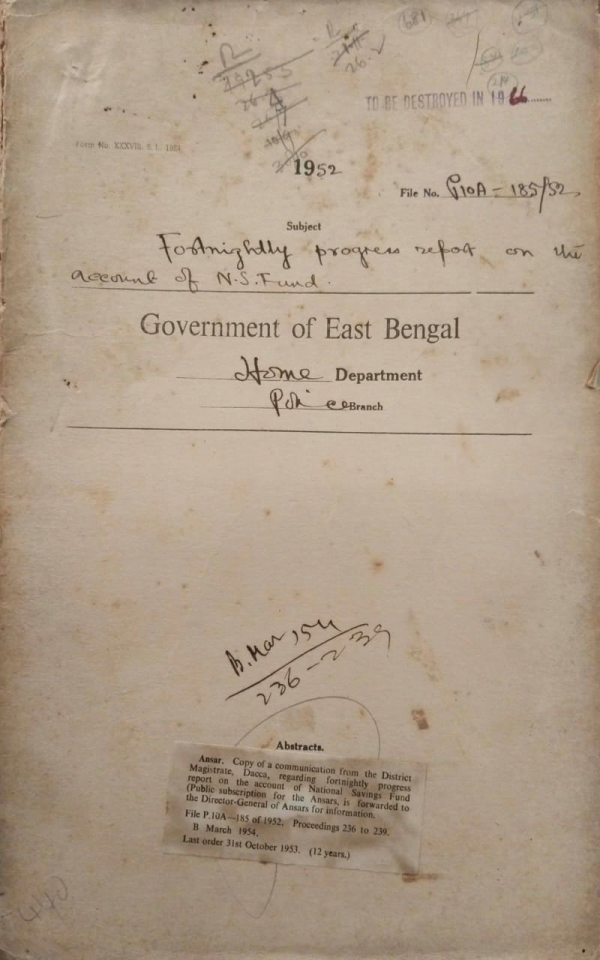 TO BE DESTROYED IN 19
Form No. XXXVIII.
1952
File No. P10A - 185/52
Subject
Fortnightly progress report on the
account of N.S. Fund.
Government of East Bengal
Home Department
Police Branch
B. Mar '54
236 - 239
Abstracts.
Ansar. Copy of a communication from the District
Magistrate, Dacca, regarding fortnightly progress
report on the account of National Savings Fund
(Public subscription for the Ansars, is forwarded to
the Director-General of Ansars for information.
File P.10A—185 of 1952. Proceedings 236 to 239.
B March 1954.
Last order 31st October 1953. (12 years.)